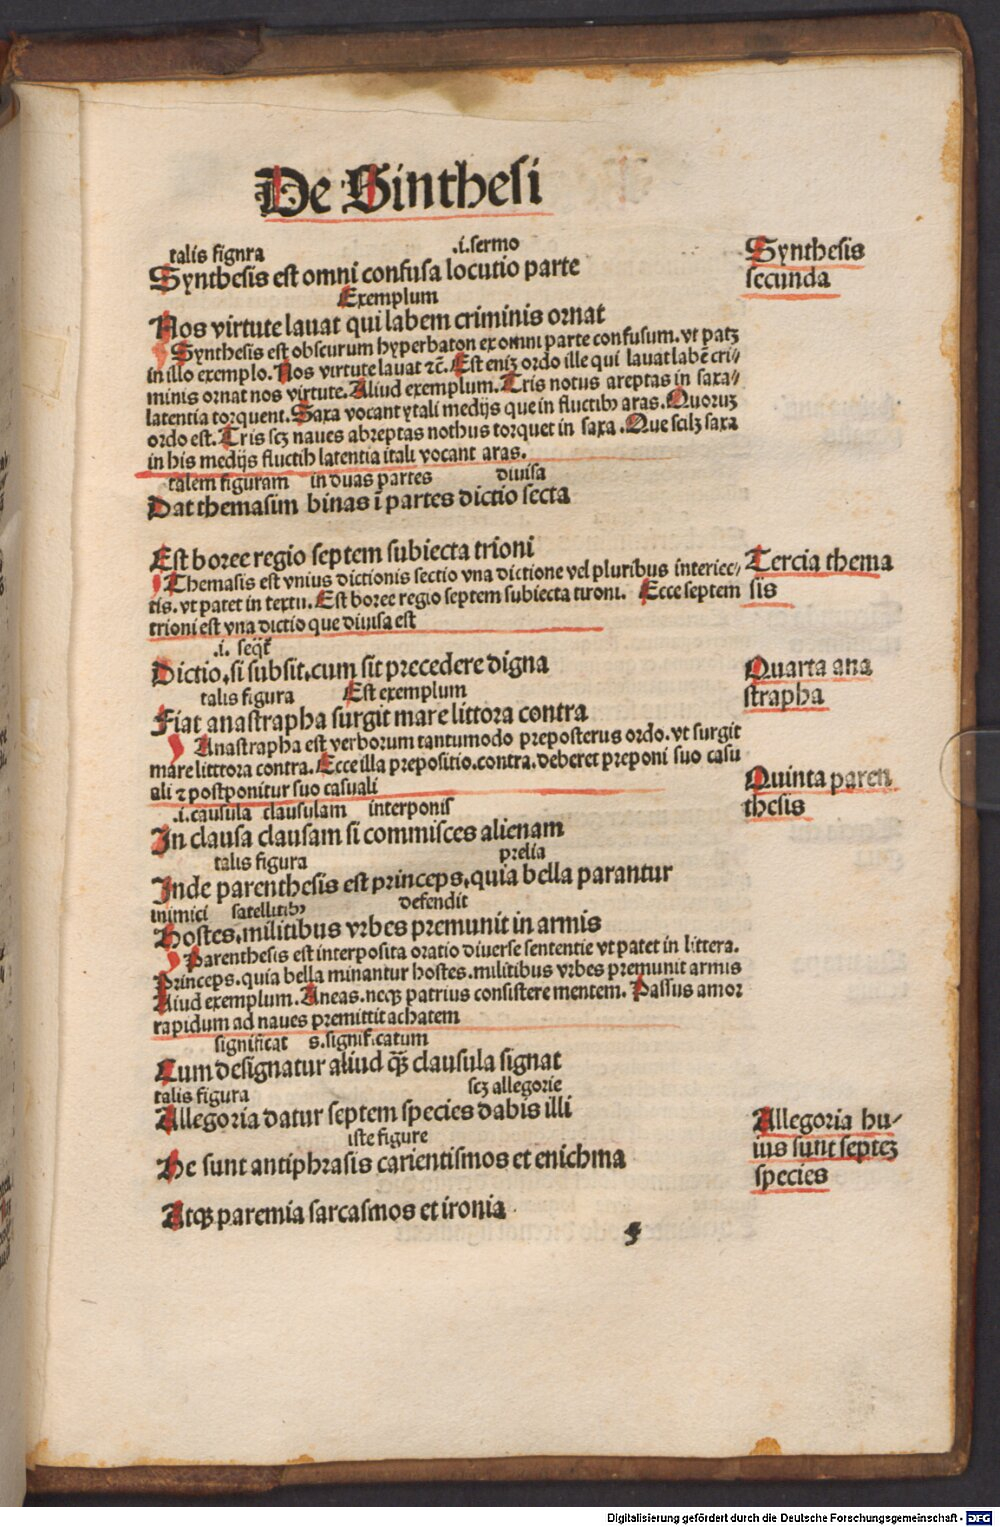 De Sinthesi
talis fignra .i.sermo
Synthesis est omni confusa locutio parte
Synthesis
secunda
Exemplum
Nos virtute lauat qui labem criminis ornat
Synthesis est obscurum hyperbaton ex omni parte confusum. vt patꝫ
in illo exemplo. Nos virtute lauat ⁊c̄. Est eniꝫ ordo ille qui lauat labē cri⸗
minis ornat nos virtute. Aliud exemplum. Tris notus areptas in saxa⸗
latentia torquent. Saxa vocant ytali medijs que in fluctibꝰ aras. Quoruꝫ
ordo est. Tris scꝫ naues abreptas nothus torquet in saxa. Que scilꝫ saxa
in his medijs fluctib latentia itali vocant aras.
talem figuram in duas partes diuisa
Dat themasim binas ī partes dictio secta
Est boree regio septem subiecta trioni
Tercia thema
sis
Themasis est vnius dictionis sectio vna dictione vel pluribus interiec⸗
tis. vt patet in textu. Est boree regio septem subiecta tironi. Ecce septem
trioni est vna dictio que diuisa est
.i. seq̄t̄
Dictio, si subsit, cum sit precedere digna
Quarta ana
strapha
talis figura Est exemplum
Fiat anastrapha surgit mare littora contra
Anastrapha est verborum tantumodo preposterus ordo. vt surgit
mare litttora contra. Ecce illa prepositio. contra. deberet preponi suo casu
ali ⁊ postponitur suo casuali
Quinta paren
thesis
.i. causula clausulam interponis
In clausa clausam si commisces alienam
talis figura prelia
Inde parenthesis est princeps, quia bella parantur
inimici satellitibꝰ defendit
Hostes, militibus vrbes premunit in armis
Parenthesis est interposita oratio diuerse sententie vt patet in littera.
Princeps. quia bella minantur hostes. militibus vrbes premunit armis
Aiud exemplum. Aneas. neqꝫ patrius consistere mentem. Passus amor
rapidum ad naues premittit achatem
significat s. significatum
Cum designatur aliud q̄ꝫ clausula signat
talis figura scꝫ allegorie
Allegoria datur septem species dabis illi
Allegoria hu⸗
ius sunt septeꝫ
species
iste figure
He sunt antiphrasis carientismos et enichma
Atqꝫ paremia sarcasmos et ironia